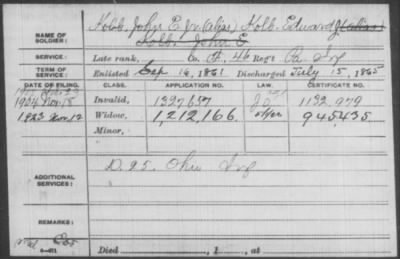 NAME OF SOLDIER: Kolb, John E. Jr. (alias) Kolb. Edward J. (alias)
Kolb, John E
SERVICE: Late rank, Co. A, 46 Reg't Pa Inf
TERM OF SERVICE: Enlisted Sep 16, 1861 Discharged July 15, 1865
DATE OF FILING. CLASS. APPLICATION NO. LAW. CERTIFICATE NO.
1904 Nov. 18 Invalid, 1327657 1132.979
1923 Nov. 12 Widow, 1,212,166. 945435
Minor,
ADDITIONAL SERVICES: D. 25. Ohio Inf
REMARKS:
Died , 1 , at